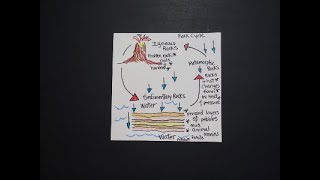 Rock Cycle
Igneous
Rocks
molten rock
cools
hardens
Metamorphic
Rocks
Rocks
that
changes
form
heat
pressure
Sedimentary Rocks
Water
pressed layers
of pebbles
mud
animal
remains
Water